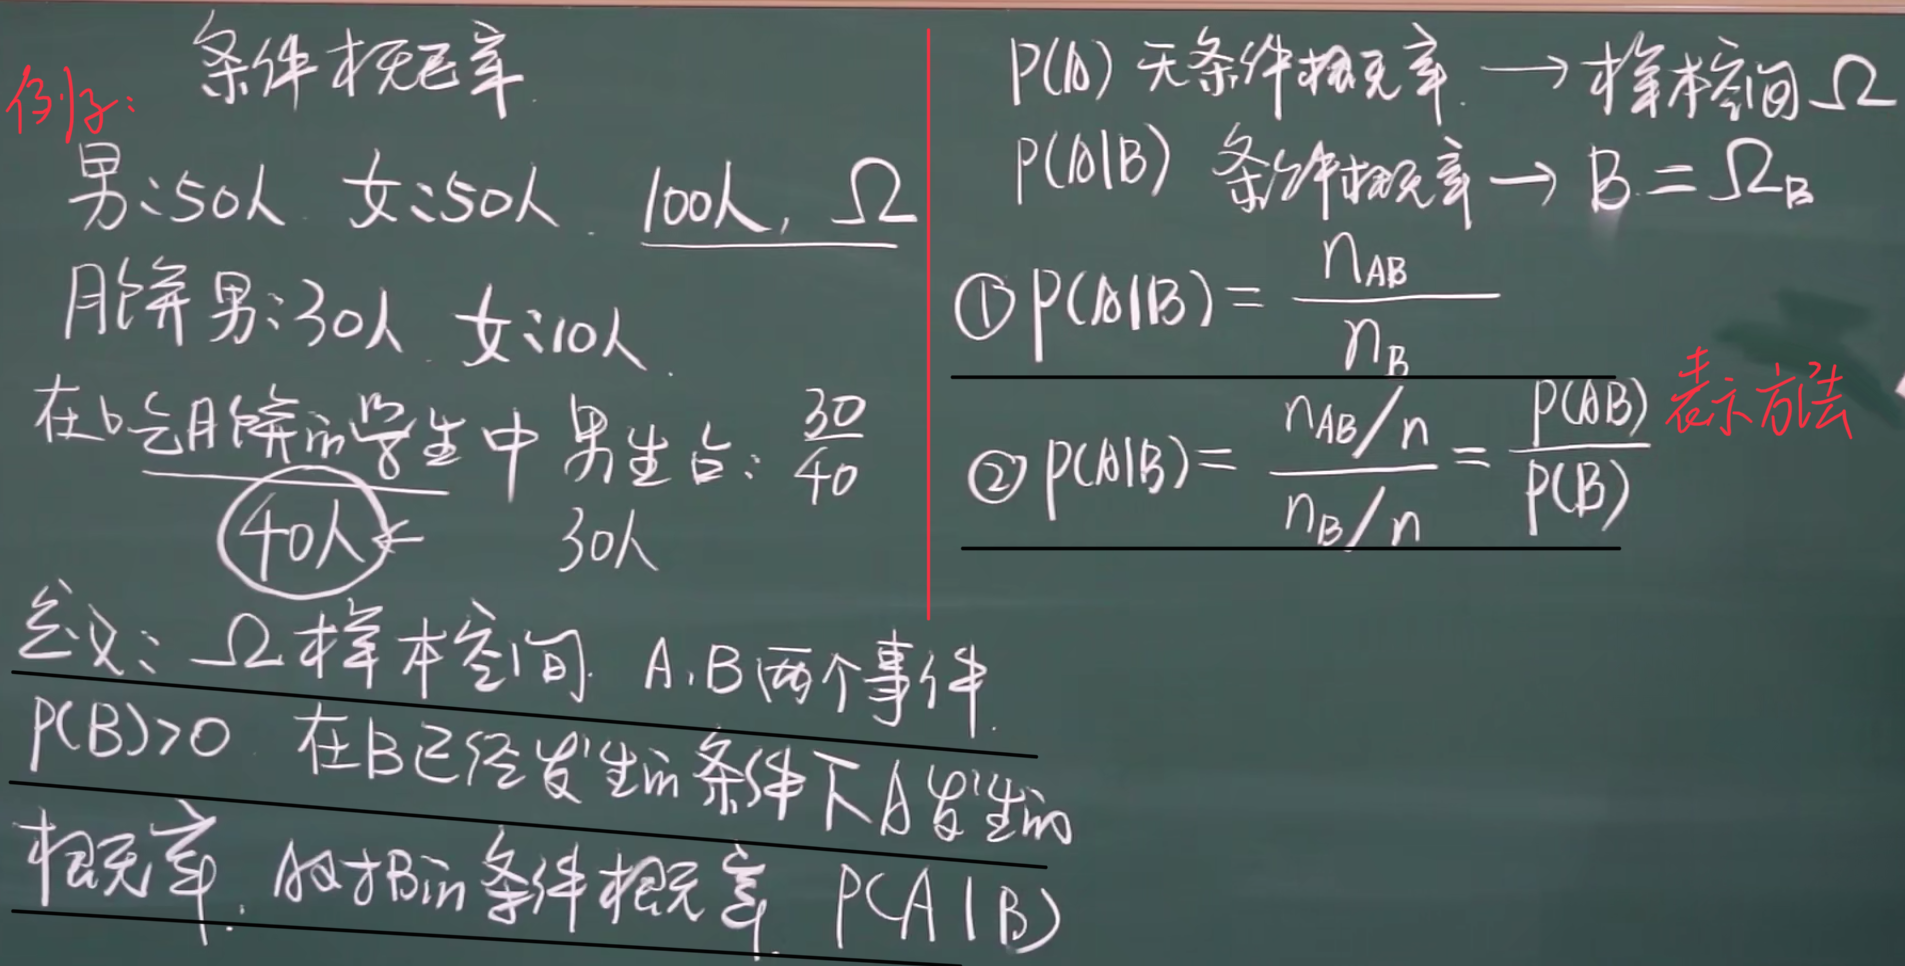 条件概率
例子:
男:50人 女:50人. 100人, Ω
月饼 男:30人. 女:10人.
在吃月饼的学生中 男生占: 30/40
40人← 30人
定义: Ω样本空间. A,B两个事件.
P(B)>0 在B已经发生的条件下A发生的
概率. A对于B的条件概率. P(A|B)
P(A) 无条件概率. → 样本空间Ω
P(A|B) 条件概率 → B = Ω_B
① P(A|B) = n_AB / n_B
② P(A|B) = (n_AB/n) / (n_B/n) = P(AB) / P(B)
表示方法